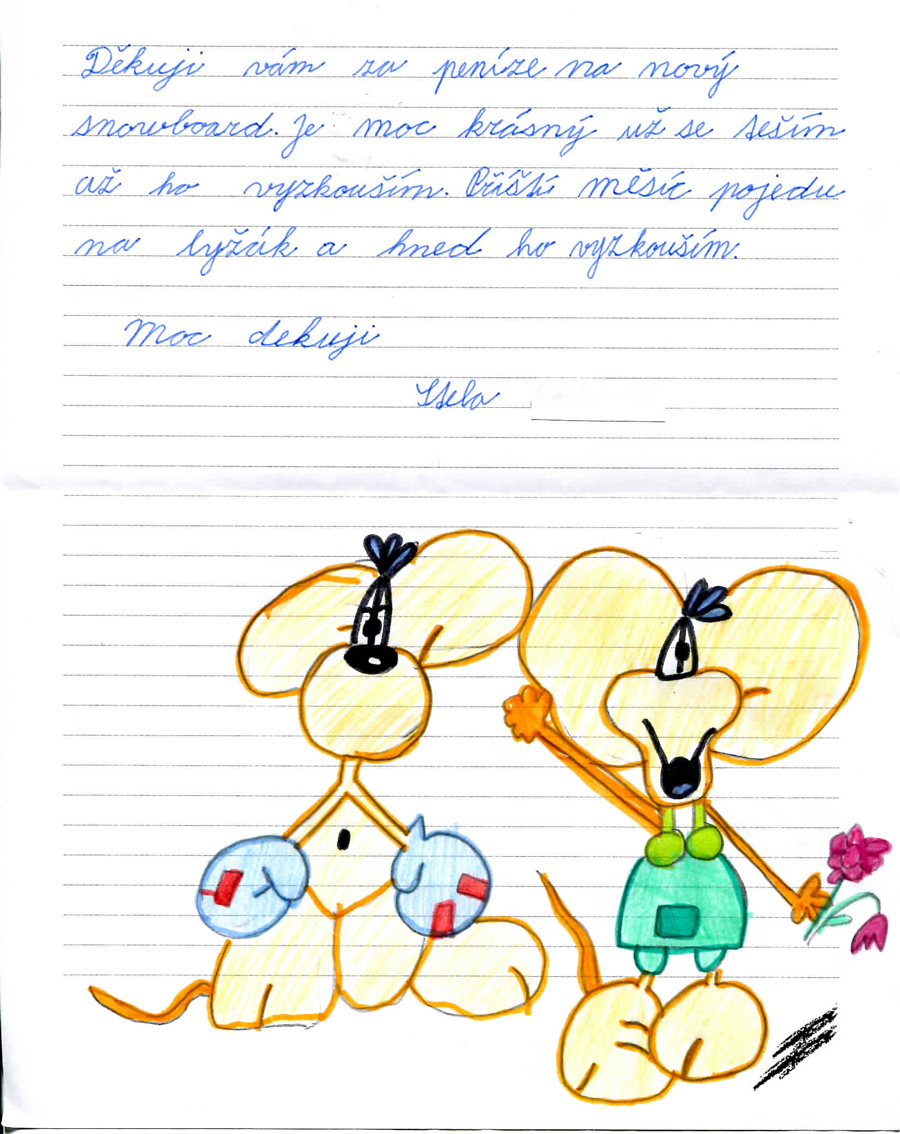 Děkuji vám za peníze na nový
snowboard. Je moc krásný už se teším
až ho vyzkouším. Příští měsíc pojedu
na lyžák a hned ho vyzkouším.
Moc dekuji
Stela